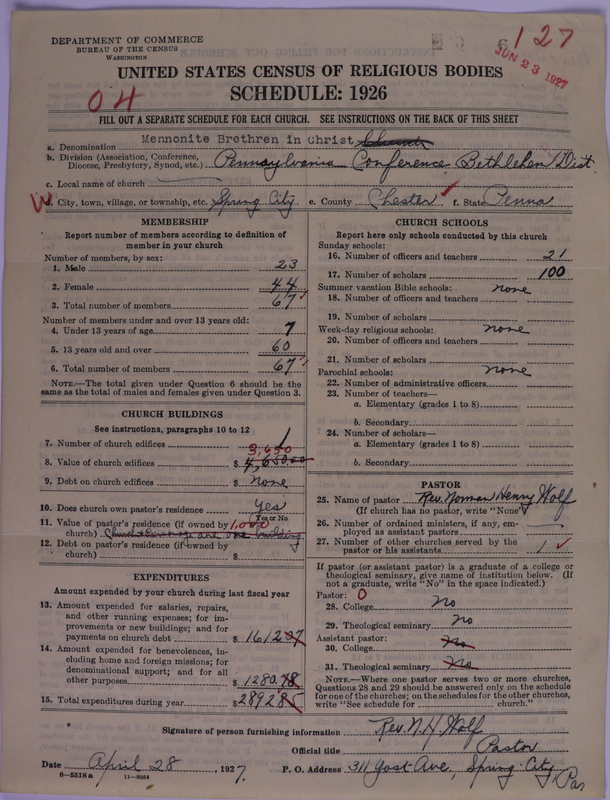 DEPARTMENT OF COMMERCE
BUREAU OF THE CENSUS
WASHINGTON
6 127
JUN 23 1927
UNITED STATES CENSUS OF RELIGIOUS BODIES
SCHEDULE: 1926
04
FILL OUT A SEPARATE SCHEDULE FOR EACH CHURCH. SEE INSTRUCTIONS ON THE BACK OF THIS SHEET
a. Denomination Mennonite Brethren in Christ Church
b. Division (Association, Conference, Diocese, Presbytery, Synod, etc.) Pennsylvania Conference Bethlehem Dist.
c. Local name of church
d. City, town, village, or township, etc. Spring City e. County Chester f. State Penna
MEMBERSHIP
Report number of members according to definition of member in your church
Number of members, by sex:
1. Male 23
2. Female 44
3. Total number of members 67
Number of members under and over 13 years old:
4. Under 13 years of age 7
5. 13 years old and over 60
6. Total number of members 67
NOTE.—The total given under Question 6 should be the same as the total of males and females given under Question 3.
CHURCH BUILDINGS
See instructions, paragraphs 10 to 12
7. Number of church edifices 1
3,650
8. Value of church edifices $ 4,650.00
9. Debt on church edifices $ none
10. Does church own pastor's residence? Yes
Yes or No
11. Value of pastor's residence (if owned by church) 1,000 Church & Parsonage are one building
12. Debt on pastor's residence (if owned by church) $
EXPENDITURES
Amount expended by your church during last fiscal year
13. Amount expended for salaries, repairs, and other running expenses; for improvements or new buildings; and for payments on church debt $ 1612.07
14. Amount expended for benevolences, including home and foreign missions; for denominational support; and for all other purposes $ 1280.78
15. Total expenditures during year $ 2892.85
CHURCH SCHOOLS
Report here only schools conducted by this church
Sunday schools:
16. Number of officers and teachers 21
17. Number of scholars 100
Summer vacation Bible schools: none
18. Number of officers and teachers
19. Number of scholars
Week-day religious schools: none
20. Number of officers and teachers
21. Number of scholars
Parochial schools: none
22. Number of administrative officers
23. Number of teachers—
a. Elementary (grades 1 to 8)
b. Secondary
24. Number of scholars—
a. Elementary (grades 1 to 8)
b. Secondary
PASTOR
25. Name of pastor Rev. Norman Henry Wolf
(If church has no pastor, write "None")
26. Number of ordained ministers, if any, employed as assistant pastors
27. Number of other churches served by the pastor or his assistants 1
If pastor (or assistant pastor) is a graduate of a college or theological seminary, give name of institution below. (If not a graduate, write "No" in the space indicated.)
Pastor: 0
28. College No
29. Theological seminary No
Assistant pastor:
30. College No
31. Theological seminary No
NOTE.—Where one pastor serves two or more churches, Questions 28 and 29 should be answered only on the schedule for one of the churches; on the schedules for the other churches, write "See schedule for church."
Signature of person furnishing information Rev. N. H. Wolf
Official title Pastor
Date April 28, 1927. P. O. Address 311 Yost Ave., Spring City, Pa
8—5518a 11—9084